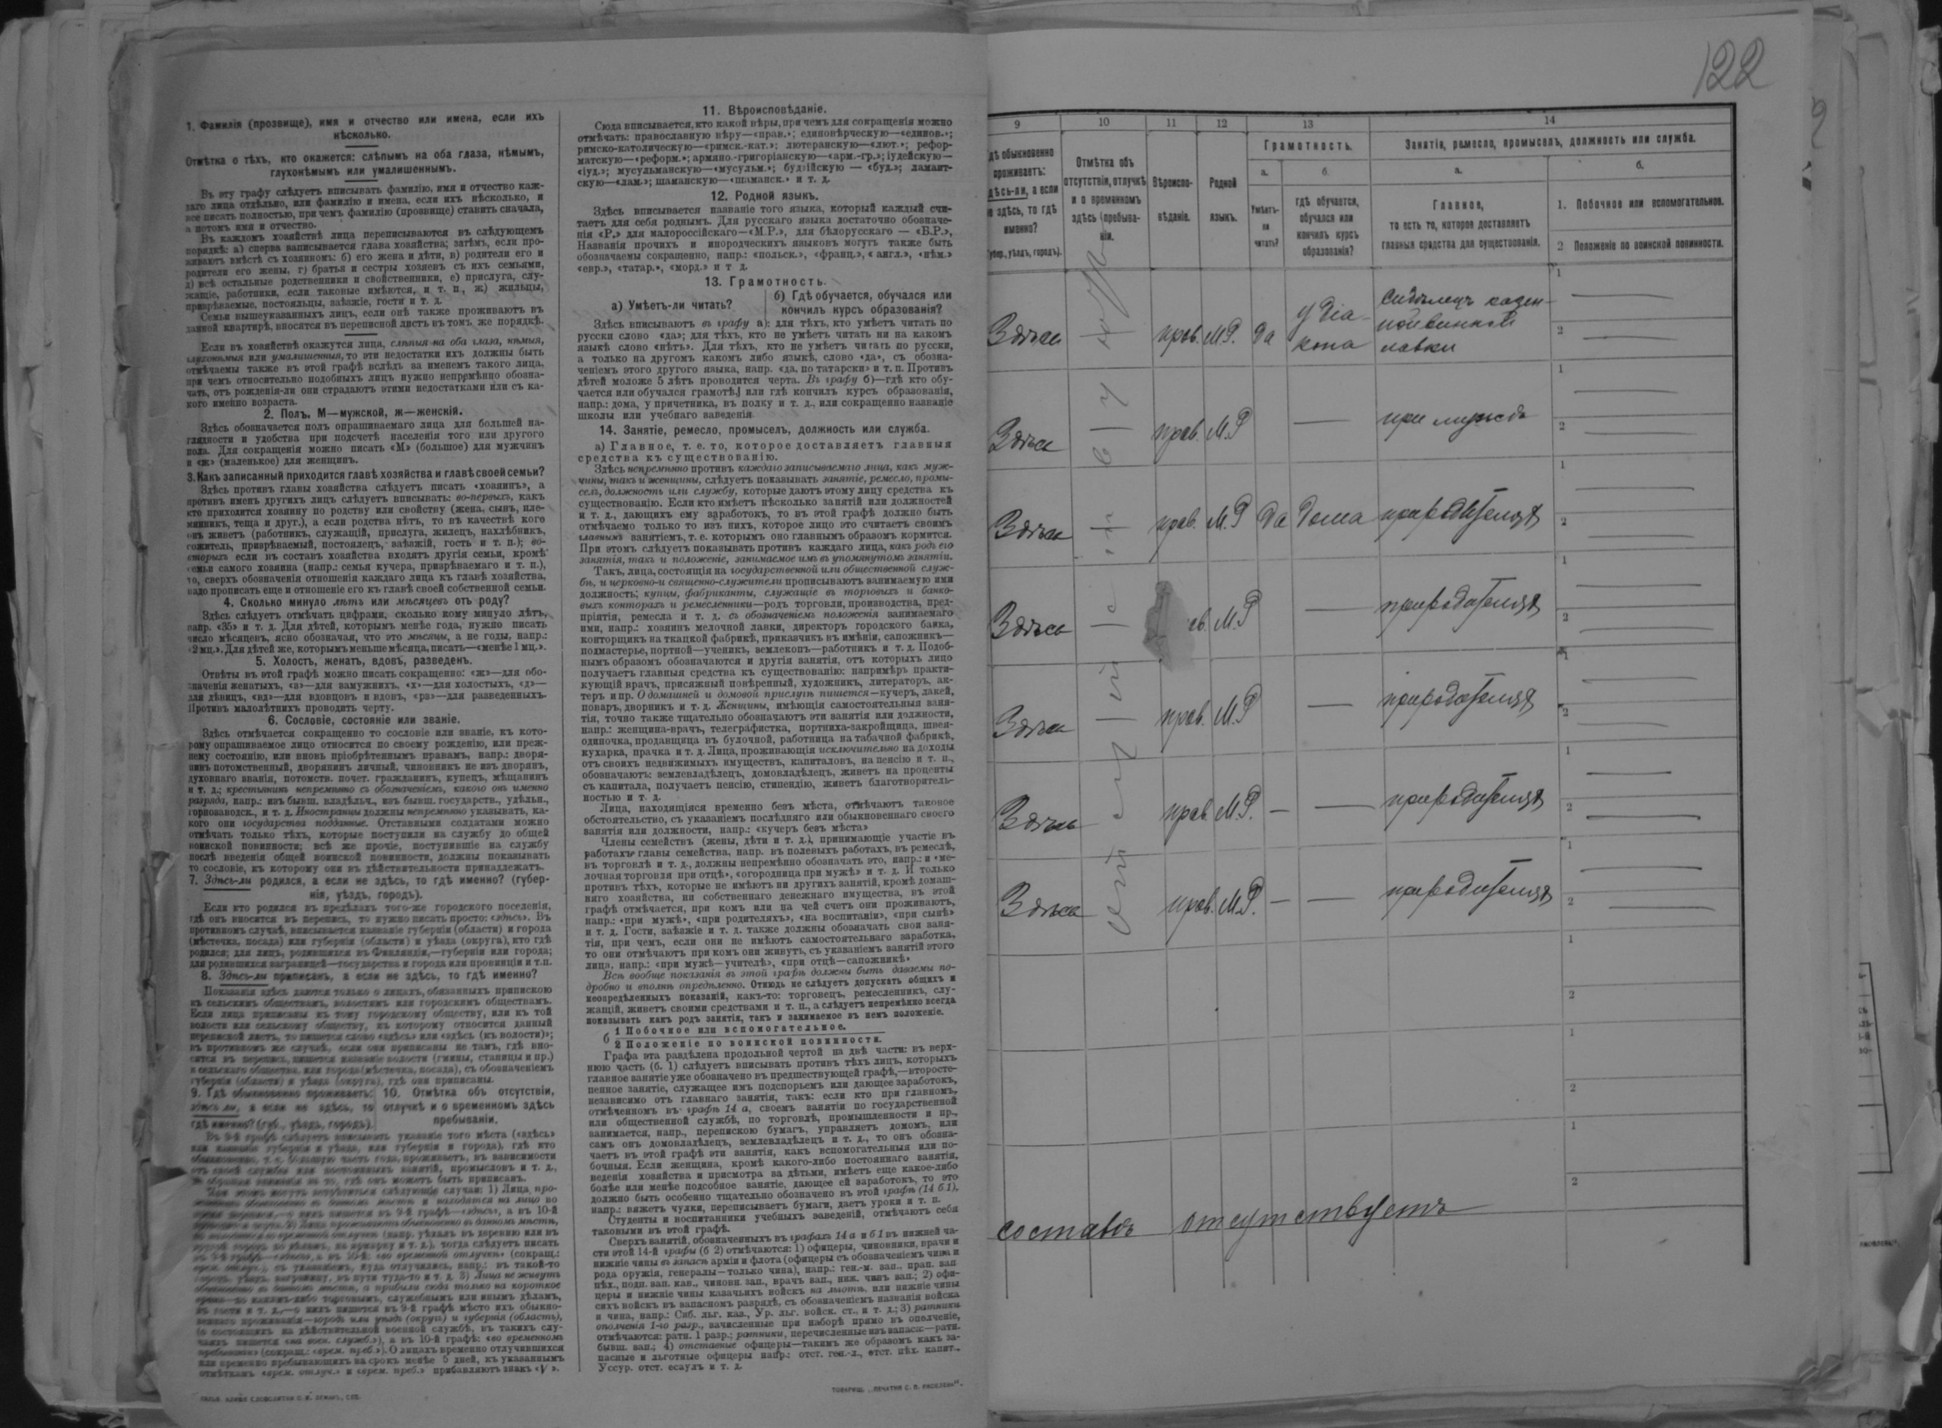 122
1. Фамилія (прозвище), имя и отчество или имена, если ихъ
нѣсколько.
Отмѣтка о тѣхъ, кто окажется: слѣпымъ на оба глаза, нѣмымъ,
глухонѣмымъ или умалишеннымъ.
Въ эту графу слѣдуетъ вписывать фамилію, имя и отчество каж-
даго лица отдѣльно, или фамилію и имена, если ихъ нѣсколько, и
все писать полностью, при чемъ фамилію (прозвище) ставить сначала,
а потомъ имя и отчество.
Въ каждомъ хозяйствѣ лица переписываются въ слѣдующемъ
порядкѣ: а) сперва записывается глава хозяйства; затѣмъ, если про-
живаютъ вмѣстѣ съ хозяиномъ: б) его жена и дѣти, в) родители его и
родители его жены, г) братья и сестры хозяевъ съ ихъ семьями,
д) всѣ остальные родственники и свойственники, е) прислуга, слу-
жащіе, работники, если таковые имѣются, и т. п., ж) жильцы,
призрѣваемые, постояльцы, заѣзжіе, гости и т. д.
Семьи вышеуказанныхъ лицъ, если онѣ также проживаютъ въ
данной квартирѣ, вносятся въ переписной листъ въ томъ же порядкѣ.
Если въ хозяйствѣ окажутся лица, слѣпыя на оба глаза, нѣмыя,
глухонѣмыя или умалишенныя, то эти недостатки ихъ должны быть
отмѣчаемы также въ этой графѣ вслѣдъ за именемъ такого лица,
при чемъ относительно подобныхъ лицъ нужно непремѣнно обозна-
чать, отъ рожденія-ли они страдаютъ этими недостатками или съ ка-
кого именно возраста.
2. Полъ. М—мужской, ж—женскій.
Здѣсь обозначается полъ опрашиваемаго лица для большей на-
глядности и удобства при подсчетѣ населенія того или другого
пола. Для сокращенія можно писать «М» (большое) для мужчинъ
и «ж» (маленькое) для женщинъ.
3. Какъ записанный приходится главѣ хозяйства и главѣ своей семьи?
Здѣсь противъ главы хозяйства слѣдуетъ писать «хозяинъ», а
противъ именъ другихъ лицъ слѣдуетъ вписывать: во-первыхъ, какъ
кто приходится хозяину по родству или свойству (жена, сынъ, пле-
мянникъ, теща и друг.), а если родства нѣтъ, то въ качествѣ кого
онъ живетъ (работникъ, служащій, прислуга, жилецъ, нахлѣбникъ,
сожитель, призрѣваемый, постоялецъ, заѣзжій, гость и т. п.); во-
вторыхъ если въ составъ хозяйства входятъ другія семьи, кромѣ
семьи самого хозяина (напр.: семья кучера, призрѣваемаго и т. п.),
то, сверхъ обозначенія отношенія каждаго лица къ главѣ хозяйства,
надо прописать еще и отношеніе его къ главѣ своей собственной семьи.
4. Сколько минуло лѣтъ или мѣсяцевъ отъ роду?
Здѣсь слѣдуетъ отмѣчать цифрами, сколько кому минуло лѣтъ,
напр. «35» и т. д. Для дѣтей, которымъ менѣе года, нужно писать
число мѣсяцевъ, ясно обозначая, что это мѣсяцы, а не годы, напр.:
«2 мц.». Для дѣтей же, которымъ меньше мѣсяца, писать—«менѣе 1 мц.».
5. Холостъ, женатъ, вдовъ, разведенъ.
Отвѣты въ этой графѣ можно писать сокращенно: «ж»—для обо-
значенія женатыхъ, «з»—для замужнихъ, «х»—для холостыхъ, «д»—
для дѣвицъ, «вд»—для вдовцовъ и вдовъ, «ра»—для разведенныхъ.
Противъ малолѣтнихъ проводить черту.
6. Сословіе, состояніе или званіе.
Здѣсь отмѣчается сокращенно то сословіе или званіе, къ кото-
рому опрашиваемое лицо относится по своему рожденію, или преж-
нему состоянію, или вновь пріобрѣтеннымъ правамъ, напр.: дворя-
нинъ потомственный, дворянинъ личный, чиновникъ не изъ дворянъ,
духовнаго званія, потомств. почет. гражданинъ, купецъ, мѣщанинъ
и т. д.; крестьянинъ непремѣнно съ обозначеніемъ, какого онъ именно
разряда, напр.: изъ бывш. владѣльч., изъ бывш. государств., удѣльн.,
горнозаводск., и т. д. Иностранцы должны непремѣнно указывать, ка-
кого они государства подданные. Отставными солдатами можно
отмѣчать только тѣхъ, которые поступили на службу до общей
воинской повинности; всѣ же прочіе, поступившіе на службу
послѣ введенія общей воинской повинности, должны показывать
то сословіе, къ которому они въ дѣйствительности принадлежатъ.
7. Здѣсь-ли родился, а если не здѣсь, то гдѣ именно? (губер-
нія, уѣздъ, городъ).
Если кто родился въ предѣлахъ того-же городского поселенія,
гдѣ онъ вносится въ перепись, то нужно писать просто: «здѣсь». Въ
противномъ случаѣ, вписывается названіе губерніи (области) и города
(мѣстечка, посада) или губерніи (области) и уѣзда (округа), кто гдѣ
родился; для лицъ, родившихся въ Финляндіи,—губерніи или города;
для родившихся заграницей—государства и города или провинціи и т.п.
8. Здѣсь-ли приписанъ, а если не здѣсь, то гдѣ именно?
Показанія здѣсь даются только о лицахъ, обязанныхъ припискою
къ сельскимъ обществамъ, волостямъ или городскимъ обществамъ.
Если лица приписаны къ тому городскому обществу, или къ той
волости или сельскому обществу, къ которому относится данный
переписной листъ, то пишется слово «здѣсь» или «здѣсь (къ волости)»;
въ противномъ же случаѣ, если они приписаны не тамъ, гдѣ вно-
сятся въ перепись, пишется названіе волости (гмины, станицы и пр.)
и сельскаго общества, или города (мѣстечка, посада), съ обозначеніемъ
губерніи (области) и уѣзда (округа), гдѣ они приписаны.
9. Гдѣ обыкновенно проживаетъ: здѣсь ли, а если не здѣсь, то гдѣ именно? (губ., уѣздъ, городъ).
10. Отмѣтка объ отсутствіи, отлучкѣ и о временномъ здѣсь пребываніи.
11. Вѣроисповѣданіе.
Сюда вписывается, кто какой вѣры, при чемъ для сокращенія можно
отмѣчать: православную вѣру—«прав.»; единовѣрческую—«единов.»;
римско-католическую—«римск.-кат.»; лютеранскую—«лют.»; рефор-
матскую—«реформ.»; армяно.-григоріанскую—«арм.-гр.»; іудейскую—
«іуд.»; мусульманскую—«мусульм.»; буддійскую — «буд.»; ламаит-
скую—«лам.»; шаманскую—«шаманск.» и т. д.
12. Родной языкъ.
Здѣсь вписывается названіе того языка, который каждый счи-
таетъ для себя роднымъ. Для русскаго языка достаточно обозначе-
нія «Р.» для малороссійскаго—«М.Р.», для бѣлорусскаго — «Б.Р.»,
Названія прочихъ и инородческихъ языковъ могутъ также быть
обозначаемы сокращенно, напр.: «польск.», «франц.», «англ.», «нѣм.»
«евр.», «татар.», «морд.» и т. д.
13. Грамотность.
а) Умѣетъ-ли читать?
б) Гдѣ обучается, обучался или
кончилъ курсъ образованія?
Здѣсь вписываютъ въ графу а): для тѣхъ, кто умѣетъ читать по
русски слово «да»; для тѣхъ, кто не умѣетъ читать ни на какомъ
языкѣ слово «нѣтъ». Для тѣхъ, кто не умѣетъ читать по русски,
а только на другомъ какомъ либо языкѣ, слово «да», съ обозна-
ченіемъ этого другого языка, напр. «да, по татарски» и т. п. Противъ
дѣтей моложе 5 лѣтъ проводится черта. Въ графу б)—гдѣ кто обу-
чается или обучался грамотѣ, или гдѣ кончилъ курсъ образованія,
напр.: дома, у причетника, въ полку и т. д., или сокращенно названіе
школы или учебнаго заведенія.
14. Занятіе, ремесло, промыселъ, должность или служба.
а) Главное, т. е. то, которое доставляетъ главныя
средства къ существованію.
Здѣсь непремѣнно противъ каждаго записываемаго лица, какъ муж-
чины, такъ и женщины, слѣдуетъ показывать занятіе, ремесло, промы-
селъ, должность или службу, которые даютъ этому лицу средства къ
существованію. Если кто имѣетъ нѣсколько занятій или должностей
и т. д., дающихъ ему заработокъ, то въ этой графѣ должно быть
отмѣчаемо только то изъ нихъ, которое лицо это считаетъ своимъ
главнымъ занятіемъ, т. е. которымъ оно главнымъ образомъ кормится.
При этомъ слѣдуетъ показывать противъ каждаго лица, какъ родъ его
занятія, такъ и положеніе, занимаемое имъ въ упомянутомъ занятіи.
Такъ, лица, состоящія на государственной или общественной служ-
бѣ, и церковно-и священно-служители прописываютъ занимаемую ими
должность; купцы, фабриканты, служащіе въ торговыхъ и банко-
выхъ конторахъ и ремесленники—родъ торговли, производства, пред-
пріятія, ремесла и т. д. съ обозначеніемъ положенія занимаемаго
ими, напр.: хозяинъ мелочной лавки, директоръ городского банка,
конторщикъ на ткацкой фабрикѣ, приказчикъ въ имѣніи, сапожникъ—
подмастерье, портной—ученикъ, землекопъ—работникъ и т. д. Подоб-
нымъ образомъ обозначаются и другія занятія, отъ которыхъ лицо
получаетъ главныя средства къ существованію: напримѣръ практи-
кующій врачъ, присяжный повѣренный, художникъ, литераторъ, ак-
теръ и пр. О домашней и домовой прислугѣ пишется—кучеръ, лакей,
поваръ, дворникъ и т. д. Женщины, имѣющія самостоятельныя заня-
тія, точно также тщательно обозначаютъ эти занятія или должности,
напр.: женщина-врачъ, телеграфистка, портниха-закройщица, швея-
одиночка, продавщица въ булочной, работница на табачной фабрикѣ,
кухарка, прачка и т. д. Лица, проживающія исключительно на доходы
отъ своихъ недвижимыхъ имуществъ, капиталовъ, на пенсію и т. п.,
обозначаютъ: землевладѣлецъ, домовладѣлецъ, живетъ на проценты
съ капитала, получаетъ пенсію, стипендію, живетъ благотворитель-
ностью и т. д.
Лица, находящіяся временно безъ мѣста, отмѣчаютъ таковое
обстоятельство, съ указаніемъ послѣдняго или обыкновеннаго своего
занятія или должности, напр.: «кучеръ безъ мѣста»
Члены семействъ (жены, дѣти и т. д.), принимающіе участіе въ
работахъ главы семейства, напр. въ полевыхъ работахъ, въ ремеслѣ,
въ торговлѣ и т. д., должны непремѣнно обозначать это, напр.: и «ме-
лочная торговля при отцѣ», «огородница при мужѣ» и т. д. И только
противъ тѣхъ, которые не имѣютъ ни другихъ занятій, кромѣ домаш-
няго хозяйства, ни собственнаго денежнаго имущества, въ этой
графѣ отмѣчается, при комъ или на чей счетъ они проживаютъ,
напр.: «при мужѣ», «при родителяхъ», «на воспитаніи», «при сынѣ»
и т. д. Гости, заѣзжіе и т. д. также должны обозначать свои заня-
тія, при чемъ, если они не имѣютъ самостоятельнаго заработка,
то они отмѣчаютъ при комъ они живутъ, съ указаніемъ занятій этого
лица, напр.: «при мужѣ—учителѣ», «при отцѣ—сапожникѣ»
Всѣ вообще показанія въ этой графѣ должны быть даваемы по-
дробно и вполнѣ опредѣленно. Отнюдь не слѣдуетъ допускать общихъ и
неопредѣленныхъ показаній, какъ-то: торговецъ, ремесленникъ, слу-
жащій, живетъ своими средствами и т. п., а слѣдуетъ непремѣнно всегда
показывать какъ родъ занятія, такъ и занимаемое въ немъ положеніе.
б 1 Побочное или вспомогательное.
2 Положеніе по воинской повинности.
Графа эта раздѣлена продольной чертой на двѣ части: въ верх-
нюю часть (б. 1) слѣдуетъ вписывать противъ тѣхъ лицъ, которыхъ
главное занятіе уже обозначено въ предшествующей графѣ,—второсте-
пенное занятіе, служащее имъ подспорьемъ или дающее заработокъ,
независимо отъ главнаго занятія, такъ: если кто при главномъ,
отмѣченномъ въ графѣ 14 а, своемъ занятіи по государственной
или общественной службѣ, по торговлѣ, промышленности и пр.,
занимается, напр., перепискою бумагъ, управляетъ домомъ, или
самъ онъ домовладѣлецъ, землевладѣлецъ и т. д., то онъ обозна-
чаетъ въ этой графѣ эти занятія, какъ вспомогательныя или по-
бочныя. Если женщина, кромѣ какого-либо постояннаго занятія,
веденія хозяйства и присмотра за дѣтьми, имѣетъ еще какое-либо
болѣе или менѣе подсобное занятіе, дающее ей заработокъ, то это
должно быть особенно тщательно обозначено въ этой графѣ (14 б 1),
напр.: вяжетъ чулки, переписываетъ бумаги, даетъ уроки и т. п.
Студенты и воспитанники учебныхъ заведеній, отмѣчаютъ себя
таковыми въ этой графѣ.
Сверхъ занятій, обозначенныхъ въ графахъ 14 а и б 1 въ нижней ча-
сти этой 14-й графы (б 2) отмѣчаются: 1) офицеры, чиновники, врачи и
нижніе чины въ запасѣ арміи и флота (офицеры съ обозначеніемъ чина и
рода оружія, генералы—только чина), напр.: ген.-м. зап., прап. зап
пѣх., подп. зап. кав., чиновн. зап., врачъ зап., ниж. чинъ зап.; 2) офи-
церы и нижніе чины казачьихъ войскъ на льготѣ, или нижніе чины
сихъ войскъ въ запасномъ разрядѣ, съ обозначеніемъ названія войска
и чина, напр.: Сиб. льг. каз., Ур. льг. войск. ст., и т. д.; 3) ратники
ополченія 1-го разр., зачисленные при наборѣ прямо въ ополченіе,
отмѣчаются: ратн. 1 разр.; ратники, перечисленные изъ запаса—ратн.
бывш. зап.; 4) отставные офицеры—такимъ же образомъ какъ за-
пасные и льготные офицеры напр.: отст. ген.-л., отст. пѣх. капит.,
Уссур. отст. есаулъ и т. д.
9 10 11 12 13 14
Гдѣ обыкновенно
проживаетъ:
здѣсь-ли, а если
не здѣсь, то гдѣ
именно?
(Губер., уѣздъ, городъ).
Отмѣтка объ
отсутствіи, отлучкѣ
и о временномъ
здѣсь пребыва-
ніи.
Вѣроиспо-
вѣданіе.
Родной
языкъ.
Грамотность.
а.
Умѣетъ-
ли
читать?
б.
гдѣ обучается,
обучался или
кончилъ курсъ
образованія?
Занятія, ремесло, промыселъ, должность или служба.
а.
Главное,
то есть то, которое доставляетъ
главныя средства для существованія.
б.
1. Побочное или вспомогательное.
2 Положеніе по воинской повинности.
Здѣсь прав. М.Р. да у діа-кона Сидѣлецъ казен-ной винной лавки 1 2
Здѣсь прав. М.Р — при мужѣ 1 2
Здѣсь прав. М.Р да дома при родителяхъ 1 2
Здѣсь ав. М.Р — при родителяхъ 1 2
Здѣсь прав. М.Р — при родителяхъ 1 2
Здѣсь прав. М.Р. — — при родителяхъ 1 2
Здѣсь прав. М.Р. — — при родителяхъ 1 2
1
2
1
2
1
2
составъ отсутствуетъ